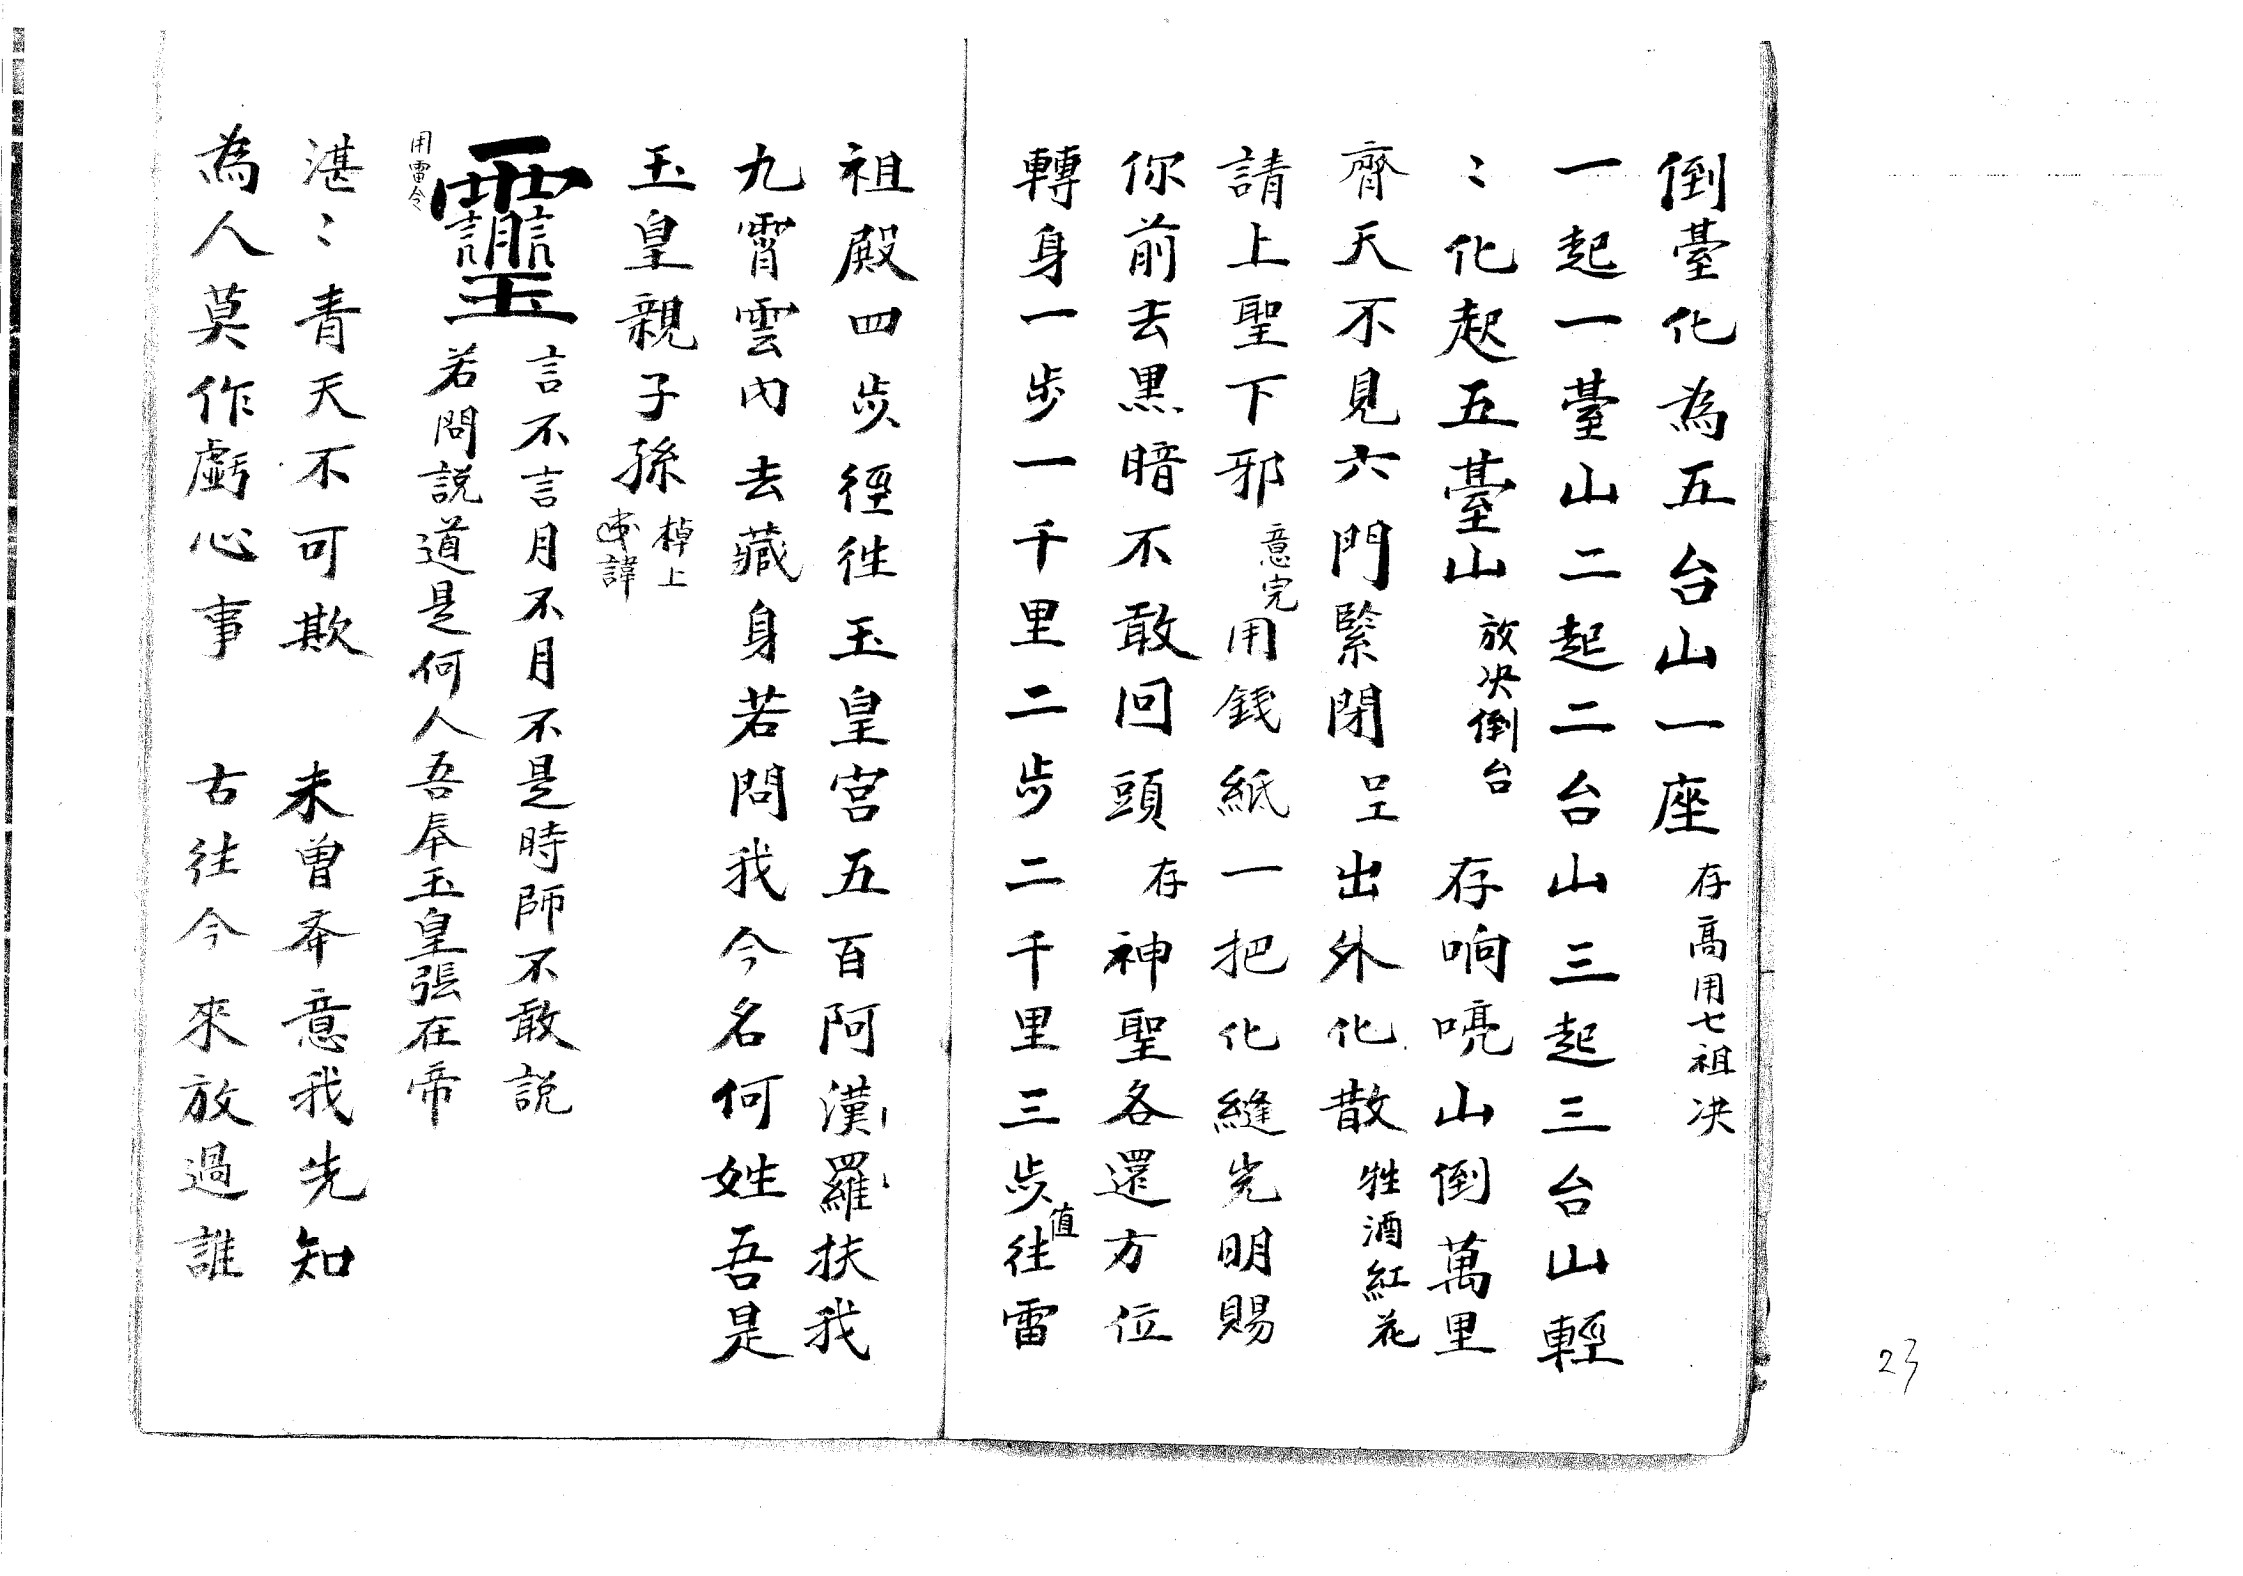 倒臺化為五台山一座 存高用七祖决
一起一臺山二起二台山三起三台山輕
〻化起五臺山 放决倒台 存响喨山倒萬里
齊天不見六門緊閉 出外化散 牲酒紅花
請上聖下邪 意完 用銭紙一把化縫光明賜
你前去黑暗不敢回頭 存 神聖各還方位
轉身一步一千里二步二千里三步值往雷
祖殿四步徑往玉皇宮五百阿漢羅扶我
九霄雲內去藏身若問我今名何姓吾是
玉皇親子孫 棹上 諱
言不言月不月不是時師不敢說
若問説道是何人吾奉玉皇張在帝
用雷令
湛〻青天不可欺 未曾舉意我先知
為人莫作虧心事 古往今來放過誰
23